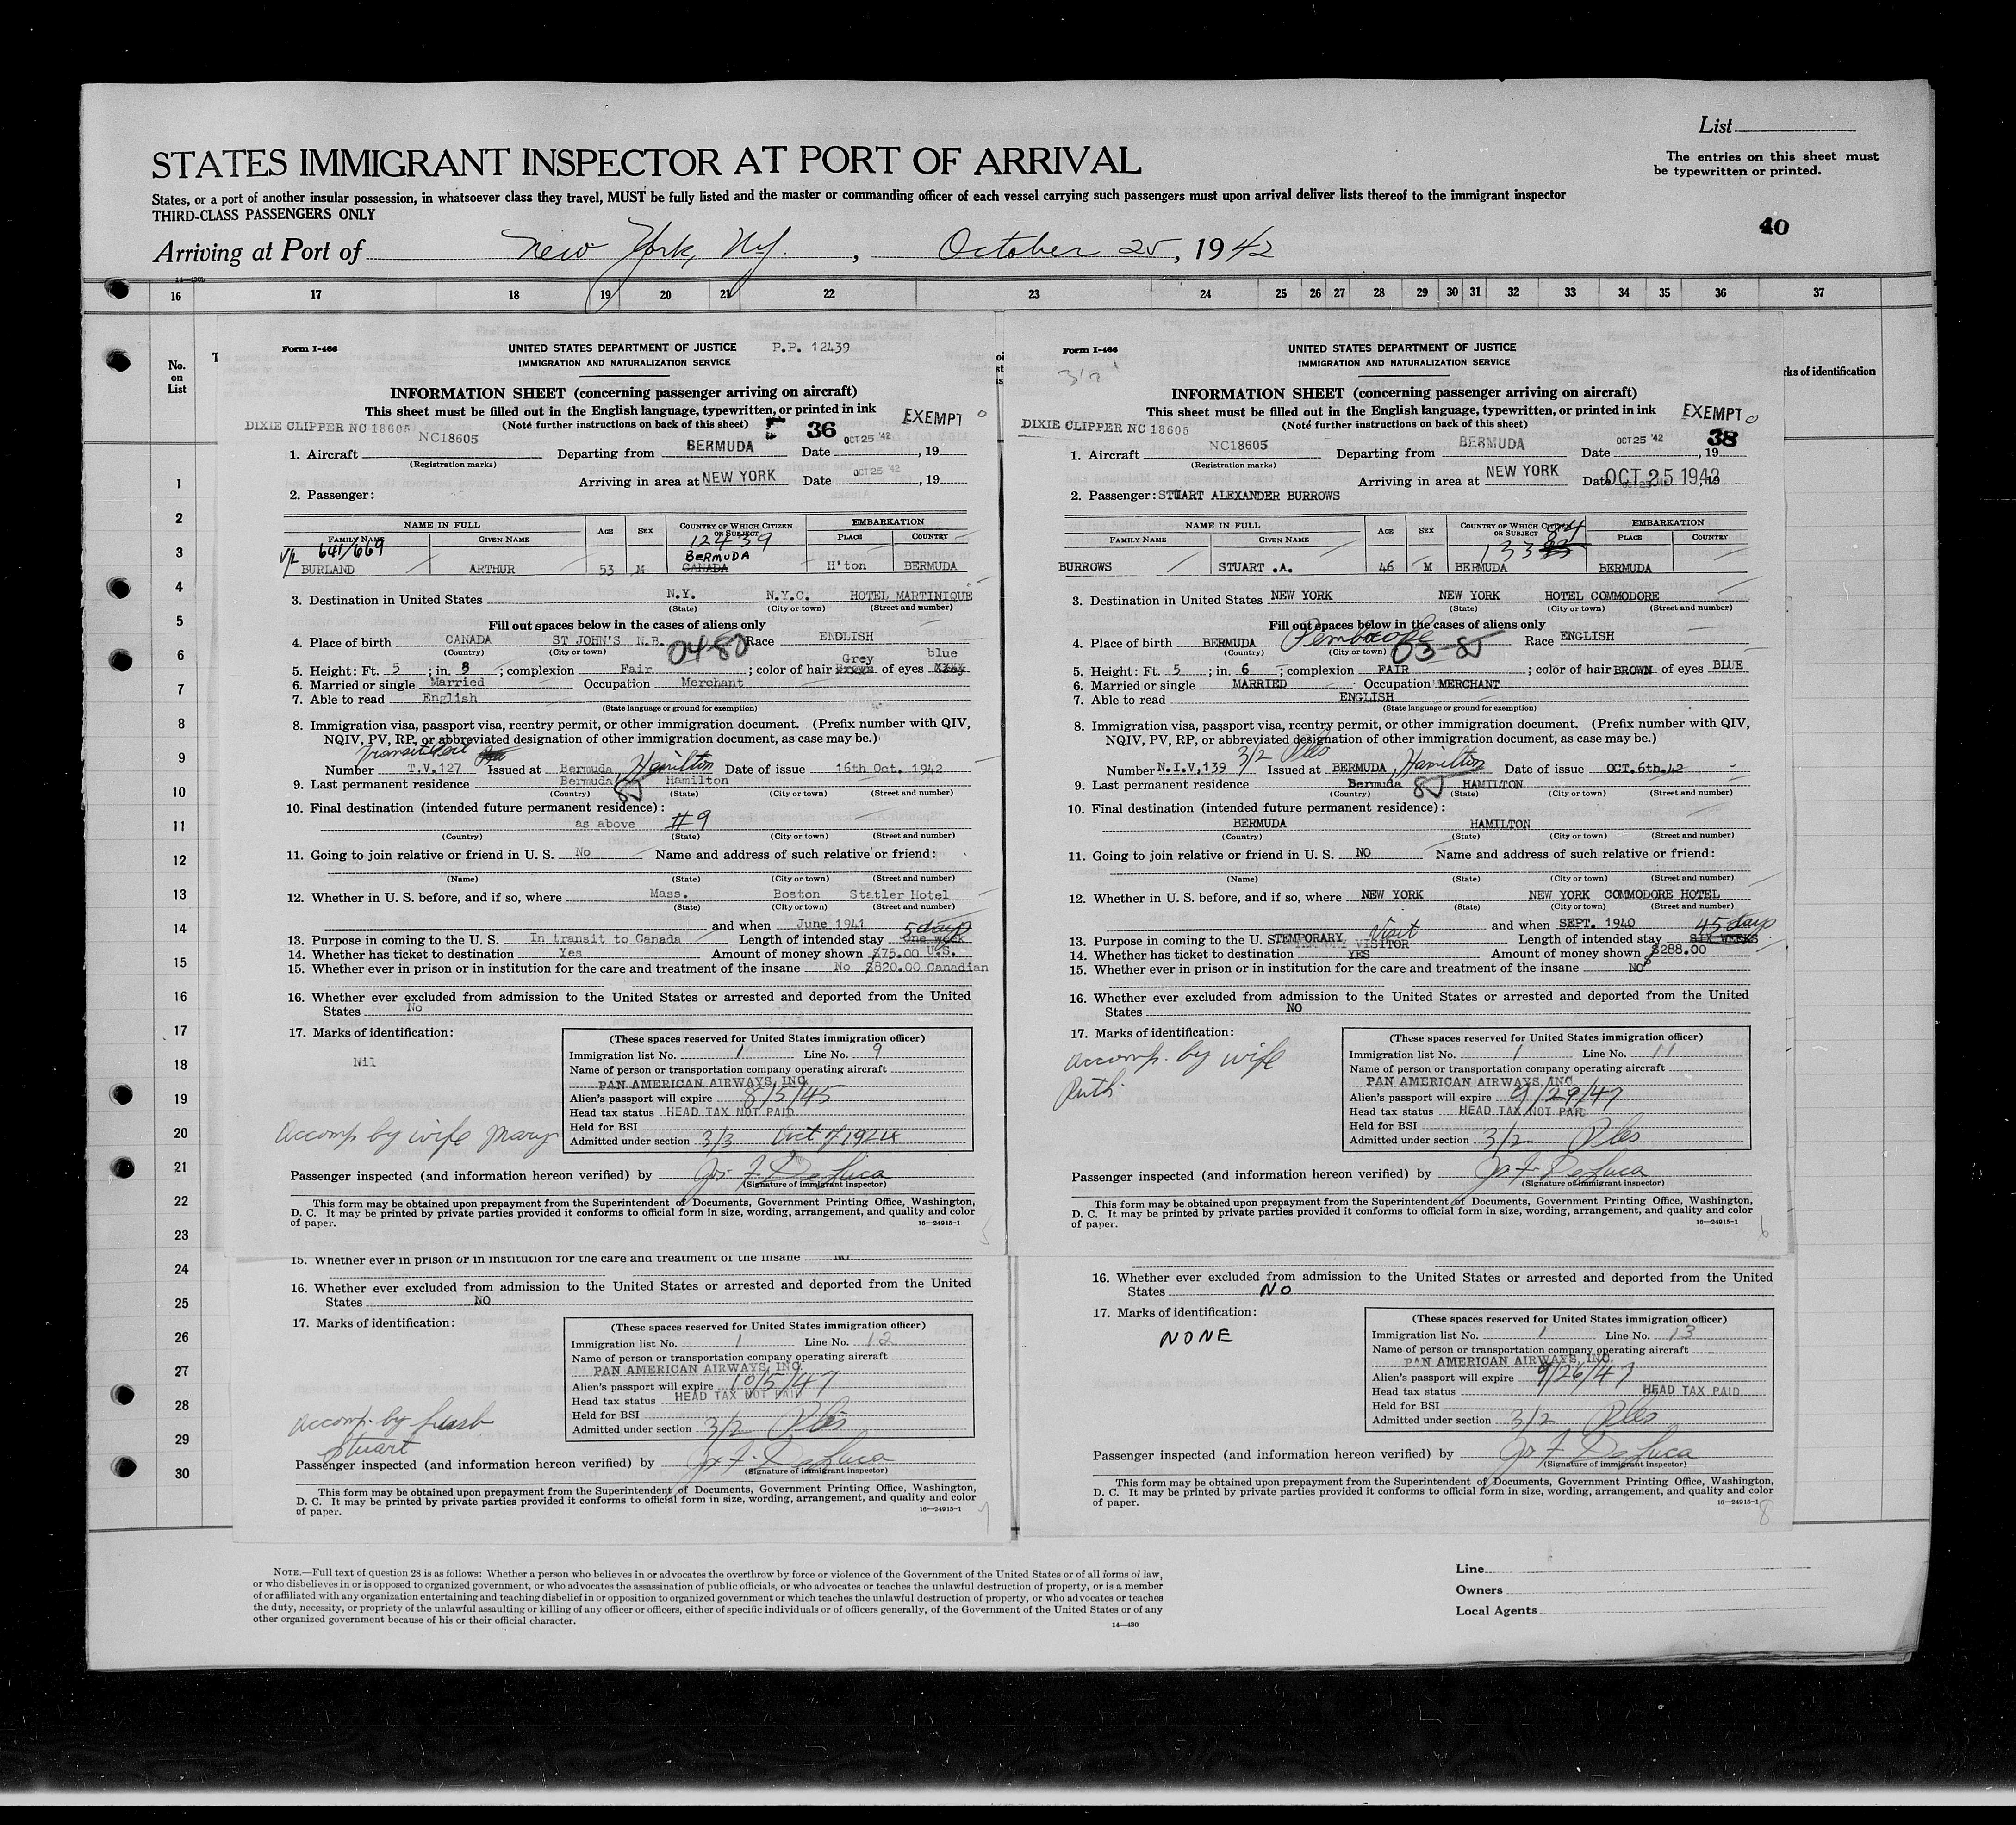 List
STATES IMMIGRANT INSPECTOR AT PORT OF ARRIVAL
The entries on this sheet must
be typewritten or printed.
States, or a port of another insular possession, in whatsoever class they travel, MUST be fully listed and the master or commanding officer of each vessel carrying such passengers must upon arrival deliver lists thereof to the immigrant inspector
THIRD-CLASS PASSENGERS ONLY
40
Arriving at Port of New York, N.Y. , October 25, 1942
16 17 18 19 20 21 22 23 24 25 26 27 28 29 30 31 32 33 34 35 36 37
No.
on
List
rks of identification
1
2
3
4
5
6
7
8
9
10
11
12
13
14
15
16
17
18
19
20
21
22
23
24
25
26
27
28
29
30
Form I-466
UNITED STATES DEPARTMENT OF JUSTICE P.P. 12439
IMMIGRATION AND NATURALIZATION SERVICE
INFORMATION SHEET (concerning passenger arriving on aircraft)
This sheet must be filled out in the English language, typewritten, or printed in ink EXEMPT
DIXIE CLIPPER NC 18605 (Note further instructions on back of this sheet) 36
NC18605 BERMUDA OCT 25 '42
1. Aircraft Departing from Date , 19
(Registration marks)
Arriving in area at NEW YORK Date OCT 25 '42 , 19
2. Passenger:
NAME IN FULL AGE SEX COUNTRY OF WHICH CITIZEN OR SUBJECT EMBARKATION
FAMILY NAME GIVEN NAME 12439 PLACE COUNTRY
V/L 641/669 BERMUDA
BURLAND ARTHUR 53 M CANADA H'ton BERMUDA
3. Destination in United States N.Y. N.Y.C. HOTEL MARTINIQUE
(State) (City or town) (Street and number)
Fill out spaces below in the cases of aliens only
4. Place of birth CANADA ST JOHN'S N.B. 04-80 Race ENGLISH
(Country) (City or town)
Grey blue
5. Height: Ft. 5 ; in. 8 ; complexion Fair ; color of hair Brown of eyes
6. Married or single Married Occupation Merchant
7. Able to read English
(State language or ground for exemption)
8. Immigration visa, passport visa, reentry permit, or other immigration document. (Prefix number with QIV,
NQIV, PV, RP, or abbreviated designation of other immigration document, as case may be.)
Number T.V.127 Issued at Bermuda Hamilton Date of issue 16th Oct. 1942
9. Last permanent residence Bermuda 85 Hamilton
(Country) (State) (City or town) (Street and number)
10. Final destination (intended future permanent residence):
as above #9
(Country) (State) (City or town) (Street and number)
11. Going to join relative or friend in U. S. No Name and address of such relative or friend:
(Name) (State) (City or town) (Street and number)
12. Whether in U. S. before, and if so, where Mass. Boston Statler Hotel
(State) (City or town) (Street and number)
and when June 1941 5 days
13. Purpose in coming to the U. S. In transit to Canada Length of intended stay One week
14. Whether has ticket to destination Yes Amount of money shown $75.00 U.S.
15. Whether ever in prison or in institution for the care and treatment of the insane No $820.00 Canadian
16. Whether ever excluded from admission to the United States or arrested and deported from the United
States No
17. Marks of identification:
Nil
(These spaces reserved for United States immigration officer)
Immigration list No. 1 Line No. 9
Name of person or transportation company operating aircraft
PAN AMERICAN AIRWAYS, INC.
Alien's passport will expire 8/5/45
Head tax status HEAD TAX NOT PAID
Held for BSI
Admitted under section 3/3 Act of 1924
Accomp by wife Mary
Passenger inspected (and information hereon verified) by Jos. F. DeLuca
(Signature of immigrant inspector)
This form may be obtained upon prepayment from the Superintendent of Documents, Government Printing Office, Washington,
D. C. It may be printed by private parties provided it conforms to official form in size, wording, arrangement, and quality and color
of paper. 16—24915-1
5
Form I-466
UNITED STATES DEPARTMENT OF JUSTICE
IMMIGRATION AND NATURALIZATION SERVICE
INFORMATION SHEET (concerning passenger arriving on aircraft)
This sheet must be filled out in the English language, typewritten, or printed in ink EXEMPT
DIXIE CLIPPER NC 18605 (Note further instructions on back of this sheet) 38
NC18605 BERMUDA OCT 25 '42
1. Aircraft Departing from Date , 19
(Registration marks)
Arriving in area at NEW YORK Date OCT 25 1942
2. Passenger: STUART ALEXANDER BURROWS
NAME IN FULL AGE SEX COUNTRY OF WHICH CITIZEN OR SUBJECT EMBARKATION
FAMILY NAME GIVEN NAME PLACE COUNTRY
BURROWS STUART .A. 46 M BERMUDA BERMUDA
3. Destination in United States NEW YORK NEW YORK HOTEL COMMODORE
(State) (City or town) (Street and number)
Fill out spaces below in the cases of aliens only
4. Place of birth BERMUDA Pembroke 03-85 Race ENGLISH
(Country) (City or town)
5. Height: Ft. 5 ; in. 6 ; complexion FAIR ; color of hair BROWN of eyes BLUE
6. Married or single MARRIED Occupation MERCHANT
7. Able to read ENGLISH
(State language or ground for exemption)
8. Immigration visa, passport visa, reentry permit, or other immigration document. (Prefix number with QIV,
NQIV, PV, RP, or abbreviated designation of other immigration document, as case may be.)
3/2
Number N.I.V,139 Issued at BERMUDA, Hamilton Date of issue OCT.6th.42
9. Last permanent residence Bermuda 85 HAMILTON
(Country) (State) (City or town) (Street and number)
10. Final destination (intended future permanent residence):
BERMUDA HAMILTON
(Country) (State) (City or town) (Street and number)
11. Going to join relative or friend in U. S. NO Name and address of such relative or friend:
(Name) (State) (City or town) (Street and number)
12. Whether in U. S. before, and if so, where NEW YORK NEW YORK COMMODORE HOTEL
(State) (City or town) (Street and number)
Visit and when SEPT. 1940 45 days
13. Purpose in coming to the U. S. TEMPORARY VISITOR Length of intended stay SIX WEEKS
14. Whether has ticket to destination YES Amount of money shown $288.00
15. Whether ever in prison or in institution for the care and treatment of the insane NO
16. Whether ever excluded from admission to the United States or arrested and deported from the United
States NO
17. Marks of identification:
Accomp. by wife
Ruth.
(These spaces reserved for United States immigration officer)
Immigration list No. 1 Line No. 11
Name of person or transportation company operating aircraft
PAN AMERICAN AIRWAYS, INC.
Alien's passport will expire 9/29/47
Head tax status HEAD TAX NOT PAID
Held for BSI
Admitted under section 3/2
Passenger inspected (and information hereon verified) by Jos. F. DeLuca
(Signature of immigrant inspector)
This form may be obtained upon prepayment from the Superintendent of Documents, Government Printing Office, Washington,
D. C. It may be printed by private parties provided it conforms to official form in size, wording, arrangement, and quality and color
of paper. 16—24915-1
6
15. Whether ever in prison or in institution for the care and treatment of the insane NO
16. Whether ever excluded from admission to the United States or arrested and deported from the United
States NO
17. Marks of identification:
(These spaces reserved for United States immigration officer)
Immigration list No. 1 Line No. 12
Name of person or transportation company operating aircraft
PAN AMERICAN AIRWAYS, INC.
Alien's passport will expire 10/5/47
Head tax status HEAD TAX NOT PAID
Held for BSI
Admitted under section 3/2
Accomp. by husb
Stuart
Passenger inspected (and information hereon verified) by Jos. F. DeLuca
(Signature of immigrant inspector)
This form may be obtained upon prepayment from the Superintendent of Documents, Government Printing Office, Washington,
D. C. It may be printed by private parties provided it conforms to official form in size, wording, arrangement, and quality and color
of paper. 16—24915-1
7
16. Whether ever excluded from admission to the United States or arrested and deported from the United
States NO
17. Marks of identification:
NONE
(These spaces reserved for United States immigration officer)
Immigration list No. 1 Line No. 13
Name of person or transportation company operating aircraft
PAN AMERICAN AIRWAYS, INC.
Alien's passport will expire 9/26/47
Head tax status HEAD TAX PAID
Held for BSI
Admitted under section 3/2
Passenger inspected (and information hereon verified) by Jos. F. DeLuca
(Signature of immigrant inspector)
This form may be obtained upon prepayment from the Superintendent of Documents, Government Printing Office, Washington,
D. C. It may be printed by private parties provided it conforms to official form in size, wording, arrangement, and quality and color
of paper. 16—24915-1
8
NOTE.—Full text of question 28 is as follows: Whether a person who believes in or advocates the overthrow by force or violence of the Government of the United States or of all forms of law,
or who disbelieves in or is opposed to organized government, or who advocates the assassination of public officials, or who advocates or teaches the unlawful destruction of property, or is a member
of or affiliated with any organization entertaining and teaching disbelief in or opposition to organized government or which teaches the unlawful destruction of property, or who advocates or teaches
the duty, necessity, or propriety of the unlawful assaulting or killing of any officer or officers, either of specific individuals or of officers generally, of the Government of the United States or of any
other organized government because of his or their official character.
14—430
Line
Owners
Local Agents